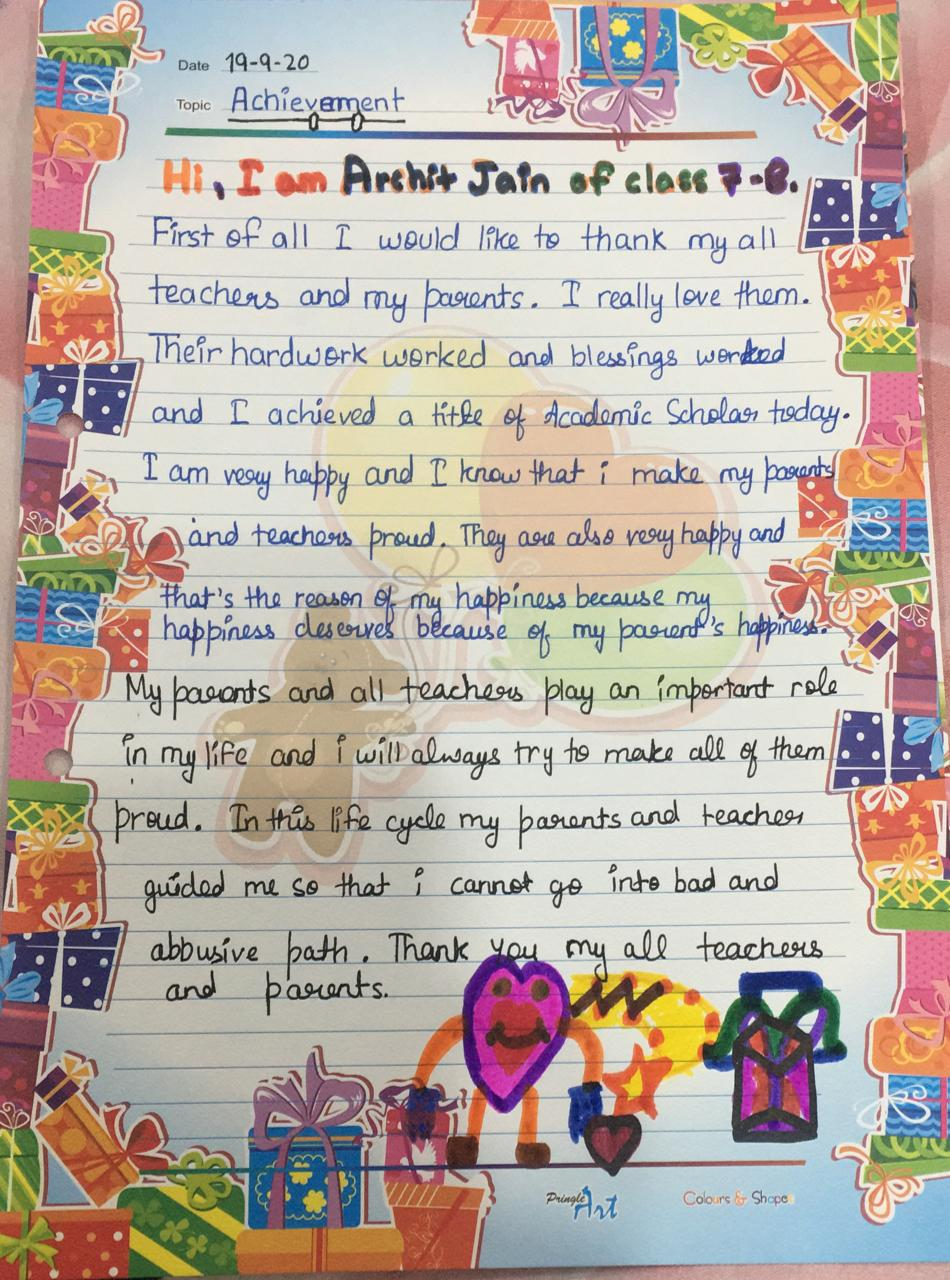 Date 19-9-20
Topic Achievement
Hi, I am Archit Jain of class 7-B.
First of all I would like to thank my all
teachers and my parents. I really love them.
Their hardwork worked and blessings worked
and I achieved a title of Academic Scholar today.
I am very happy and I know that i make my parents
and teachers proud. They are also very happy and
that's the reason of my happiness because my
happiness deserves because of my parent's happiness.
My parents and all teachers play an important role
in my life and i will always try to make all of them
proud. In this life cycle my parents and teacher
guided me so that i cannot go into bad and
abbusive path. Thank you my all teachers
and parents.
Pringle Art Colours & Shapes